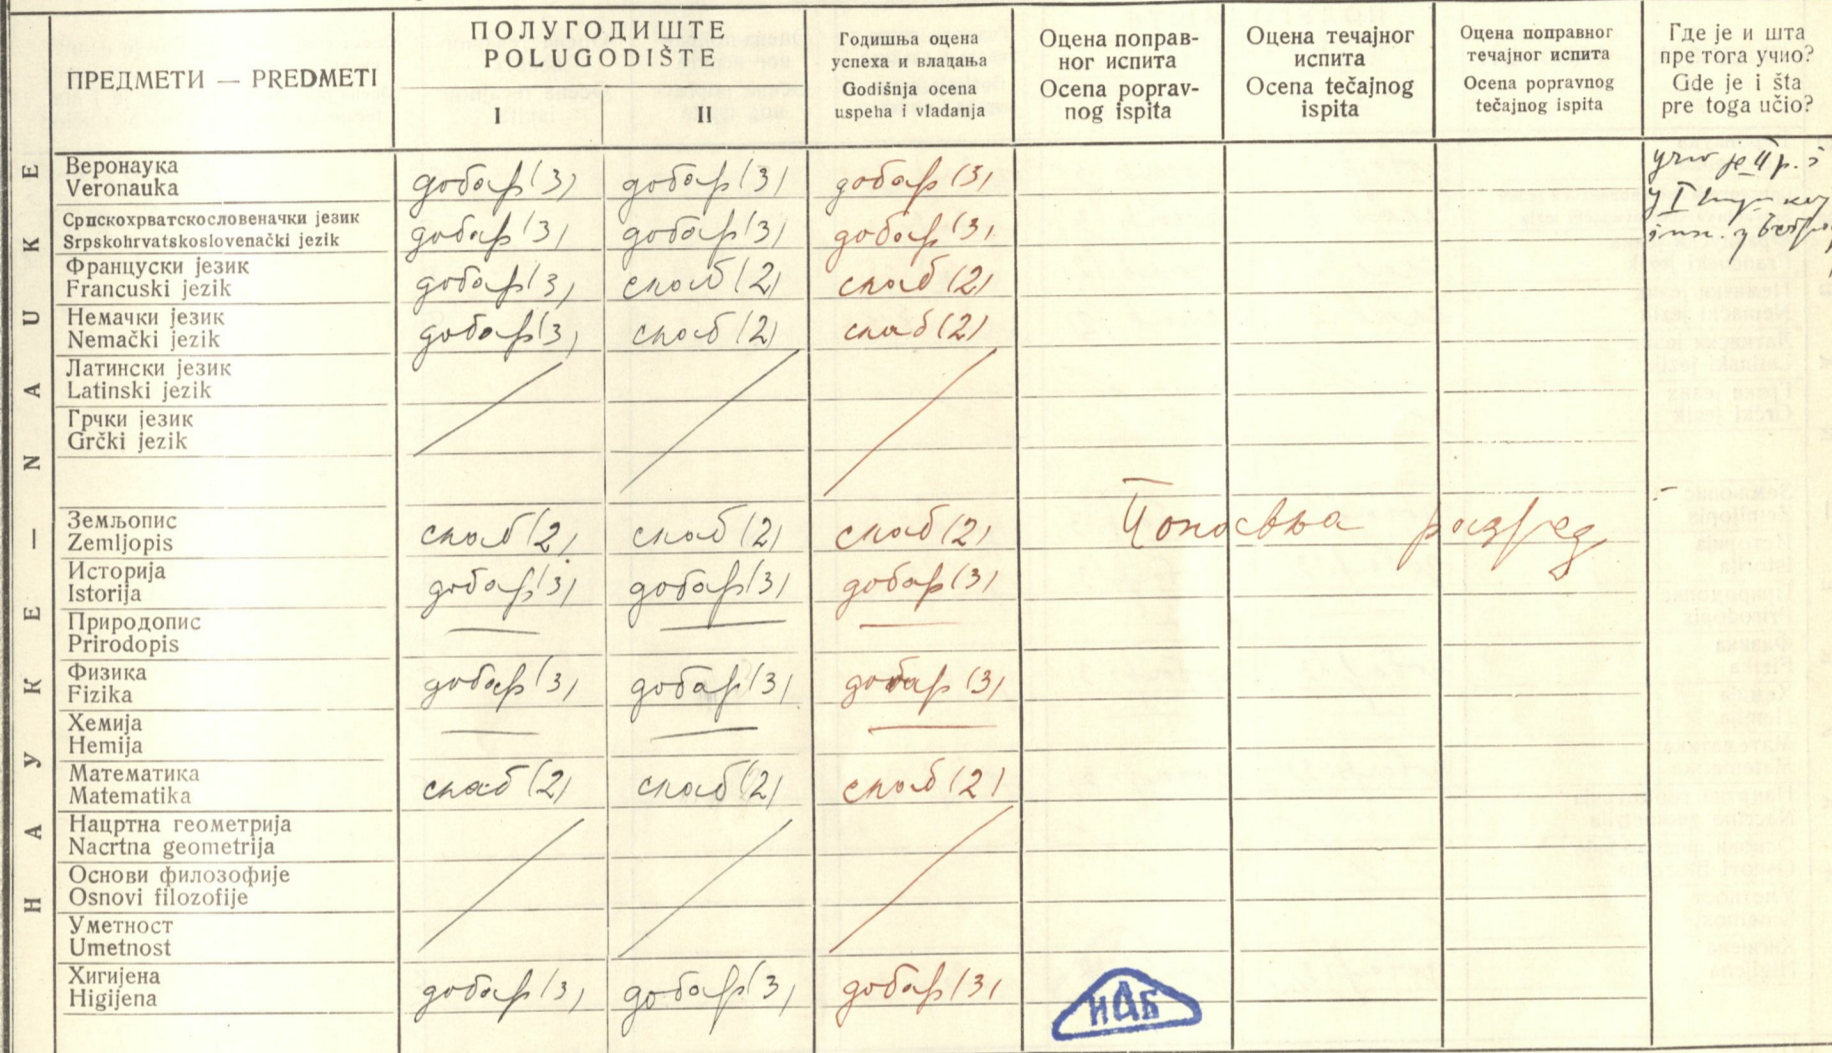 ПРЕДМЕТИ — PREDMETI
ПОЛУГОДИШТЕ
POLUGODIŠTE
I II
Годишња оцена
успеха и владања
Godišnja ocena
uspeha i vladanja
Оцена поправ-
ног испита
Ocena poprav-
nog ispita
Оцена течајног
испита
Ocena tečajnog
ispita
Оцена поправног
течајног испита
Ocena popravnog
tečajnog ispita
Где је и шта
пре тога учио?
Gde je i šta
pre toga učio?
НАУКЕ — NAUKE
Веронаука
Veronauka
добар (3) добар (3) добар (3)
учио је II р.
у I
Српскохрватскословеначки језик
Srpskohrvatskoslovenački jezik
добар (3) добар (3) добар (3)
Француски језик
Francuski jezik
добар (3) слаб (2) слаб (2)
Немачки језик
Nemački jezik
добар (3) слаб (2) слаб (2)
Латински језик
Latinski jezik
Грчки језик
Grčki jezik
Земљопис
Zemljopis
слаб (2) слаб (2) слаб (2)
Понавља разред
Историја
Istorija
добар (3) добар (3) добар (3)
Природопис
Prirodopis
Физика
Fizika
добар (3) добар (3) добар (3)
Хемија
Hemija
Математика
Matematika
слаб (2) слаб (2) слаб (2)
Нацртна геометрија
Nacrtna geometrija
Основи филозофије
Osnovi filozofije
Уметност
Umetnost
Хигијена
Higijena
добар (3) добар (3) добар (3)
ИАБ